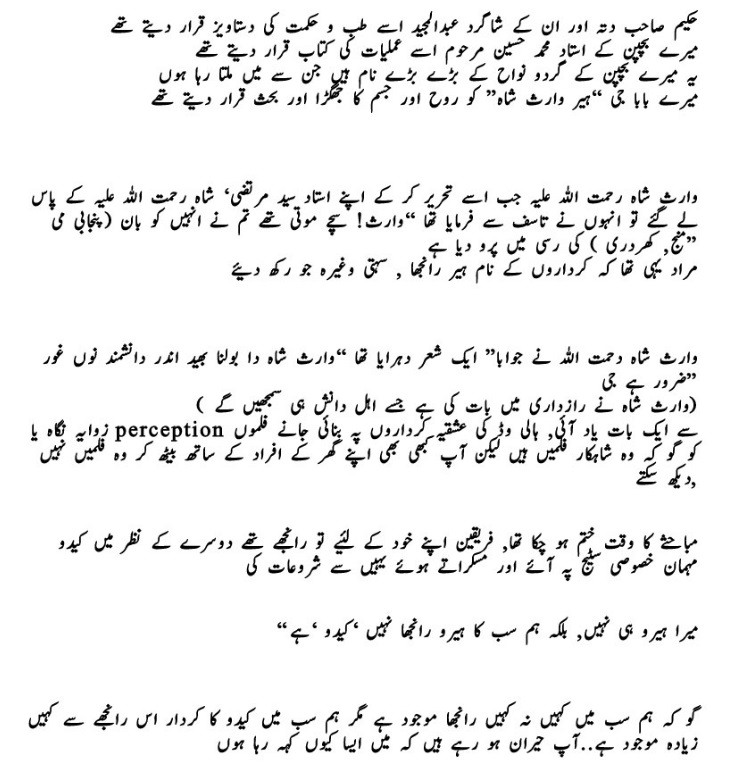 حکیم صاحب دتہ اور ان کے شاگرد عبدالمجید اسے طب و حکمت کی دستاویز قرار دیتے تھے
میرے بچپن کے استاد محمد حسین مرحوم اسے عملیات کی کتاب قرار دیتے تھے
یہ میرے بچپن کے گردو نواح کے بڑے بڑے نام ہیں جن سے میں ملتا رہا ہوں
میرے بابا جی “ہیر وارث شاہ” کو روح اور جسم کا جھگڑا اور بحث قرار دیتے تھے
وارث شاہ رحمت اللہ علیہ جب اسے تحریر کر کے اپنے استاد سید مرتضیٰ‘ شاہ رحمت اللہ علیہ کے پاس
لے گئے تو انہوں نے تاسف سے فرمایا تھا “وارث! سچے موتی تھے تم نے انہیں کو بان (پنجابی می
”منج, کھردری ) کی رسی میں پرو دیا ہے
مراد یہی تھا کہ کرداروں کے نام ہیر رانجھا , سہتی وغیرہ جو رکھ دیئے
وارث شاہ دحمت اللہ نے جوابا” ایک شعر دہرایا تھا “وارث شاہ دا بولنا بھید اندر دانشمند نوں غور
”ضرور ہے جی
(وارث شاہ نے رازداری میں بات کی ہے جسے اہل دانش ہی سمجھیں گے )
سے ایک بات یاد آئی, ہالی وڈ کی عشقیہ کرداروں پہ بنائی جانے فلموں perception زوایہ نگاہ یا
کو گو کہ وہ شاہکار فلمیں ہیں لیکن آپ کبھی بھی اپنے گھر کے افراد کے ساتھ بیٹھ کر وہ فلمیں نہیں
,دیکھ سکتے
مباحثے کا وقت ختم ہو چکا تھا, فریقین اپنے خود کے لئیے تو رانجھے تھے دوسرے کے نظر میں کیدو
مہمان خصوصی سٹیج پہ آئے اور مسکراتے ہوئے یہیں سے شروعات کی
میرا ہیرو ہی نہیں, بلکہ ہم سب کا ہیرو رانجھا نہیں ‘کیدو ‘ہے“
گو کہ ہم سب میں کہیں نہ کہیں رانجھا موجود ہے مگر ہم سب میں کیدو کا کردار اس رانجھے سے کہیں
زیادہ موجود ہے..آپ حیران ہو رہے ہیں کہ میں ایسا کیوں کہہ رہا ہوں